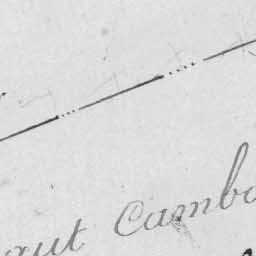 aut Camb